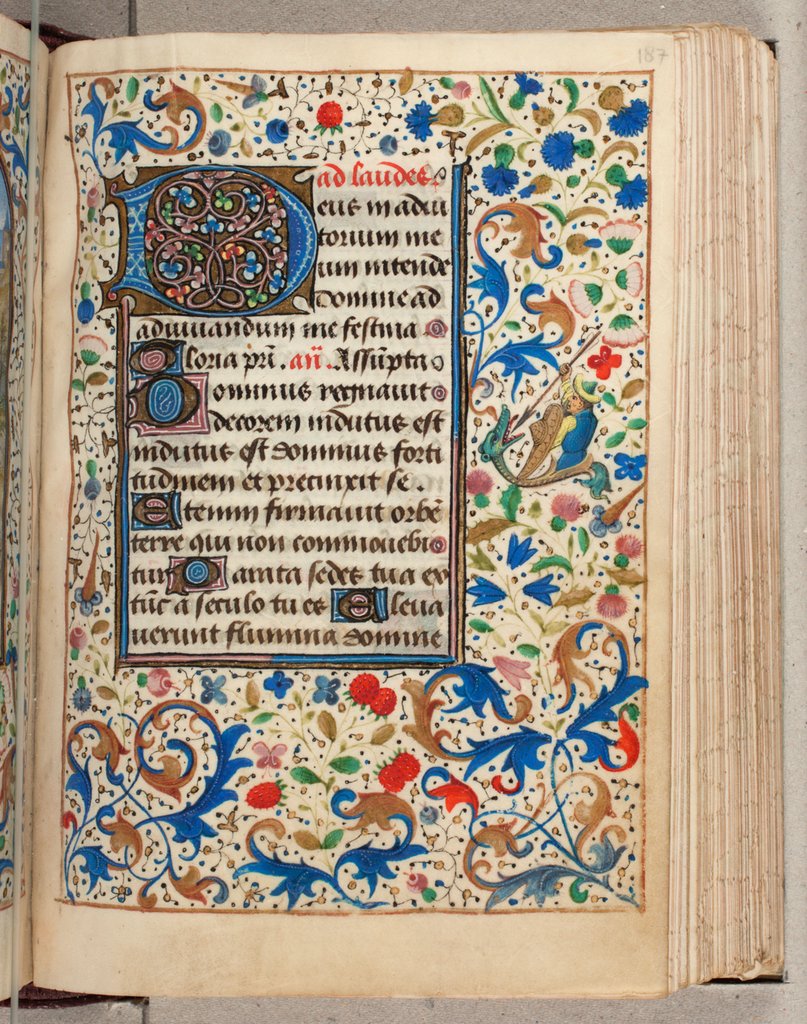 187
ad laudes
Deus in adiu
torium me
um intende
Domine ad
adiuuandum me festina
Gloria pri. añ. Assūpta
Dominus regnauit
decorem indutus est
indutus est dominus forti
tudinem et precinxit se.
Etenim firmauit orbē
terre qui non commouebi
tur Parata sedes tua ex
tūc a seculo tu es Eleua
uerunt flumina domine